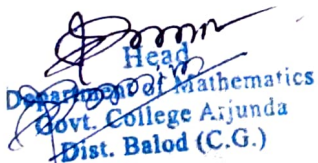 Head
Department of Mathematics
Govt. College Arjunda
Dist. Balod (C.G.)